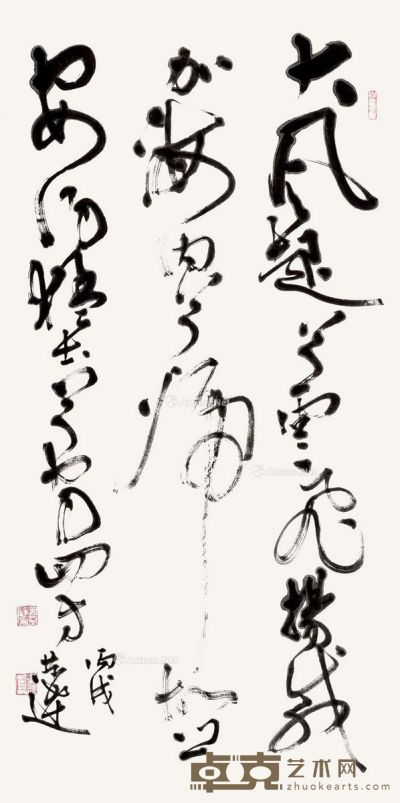 大風起兮雲飛揚威
加海内兮歸故鄉
安得猛士兮守四方
丙戌
Artron.Net
卓克艺术网
zhuokearts.com